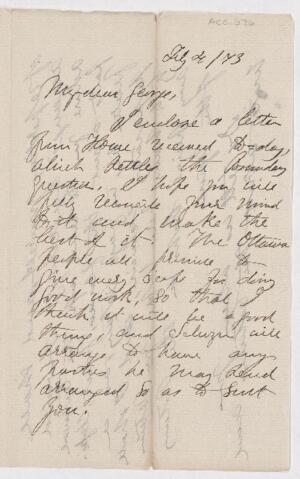 ACC-576
Feby 4/73
My dear George,
I enclose a letter
from Home received to-day,
which settles the Boundary
Question. I hope you will
fully reconcile your mind
to it and make the
best of it. The Ottawa
people all promise to
give every scope for doing
good work, so that I
think it will be a good
thing, and Selwyn will
arrange to have any
parties he may send
arranged so as to suit
you.